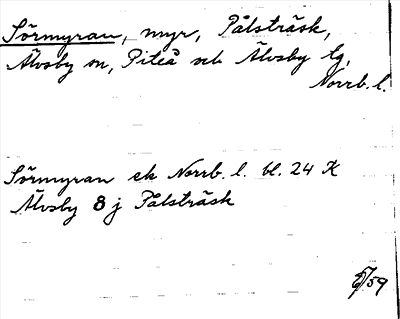 Sörmyran, myr, Pålsträsk,
Älvsby sn, Piteå och Älvsby tg,
Norrb. l.
Sörmyran ek Norrb. l. bl. 24 K
Älvsby 8 j Pålsträsk
/59